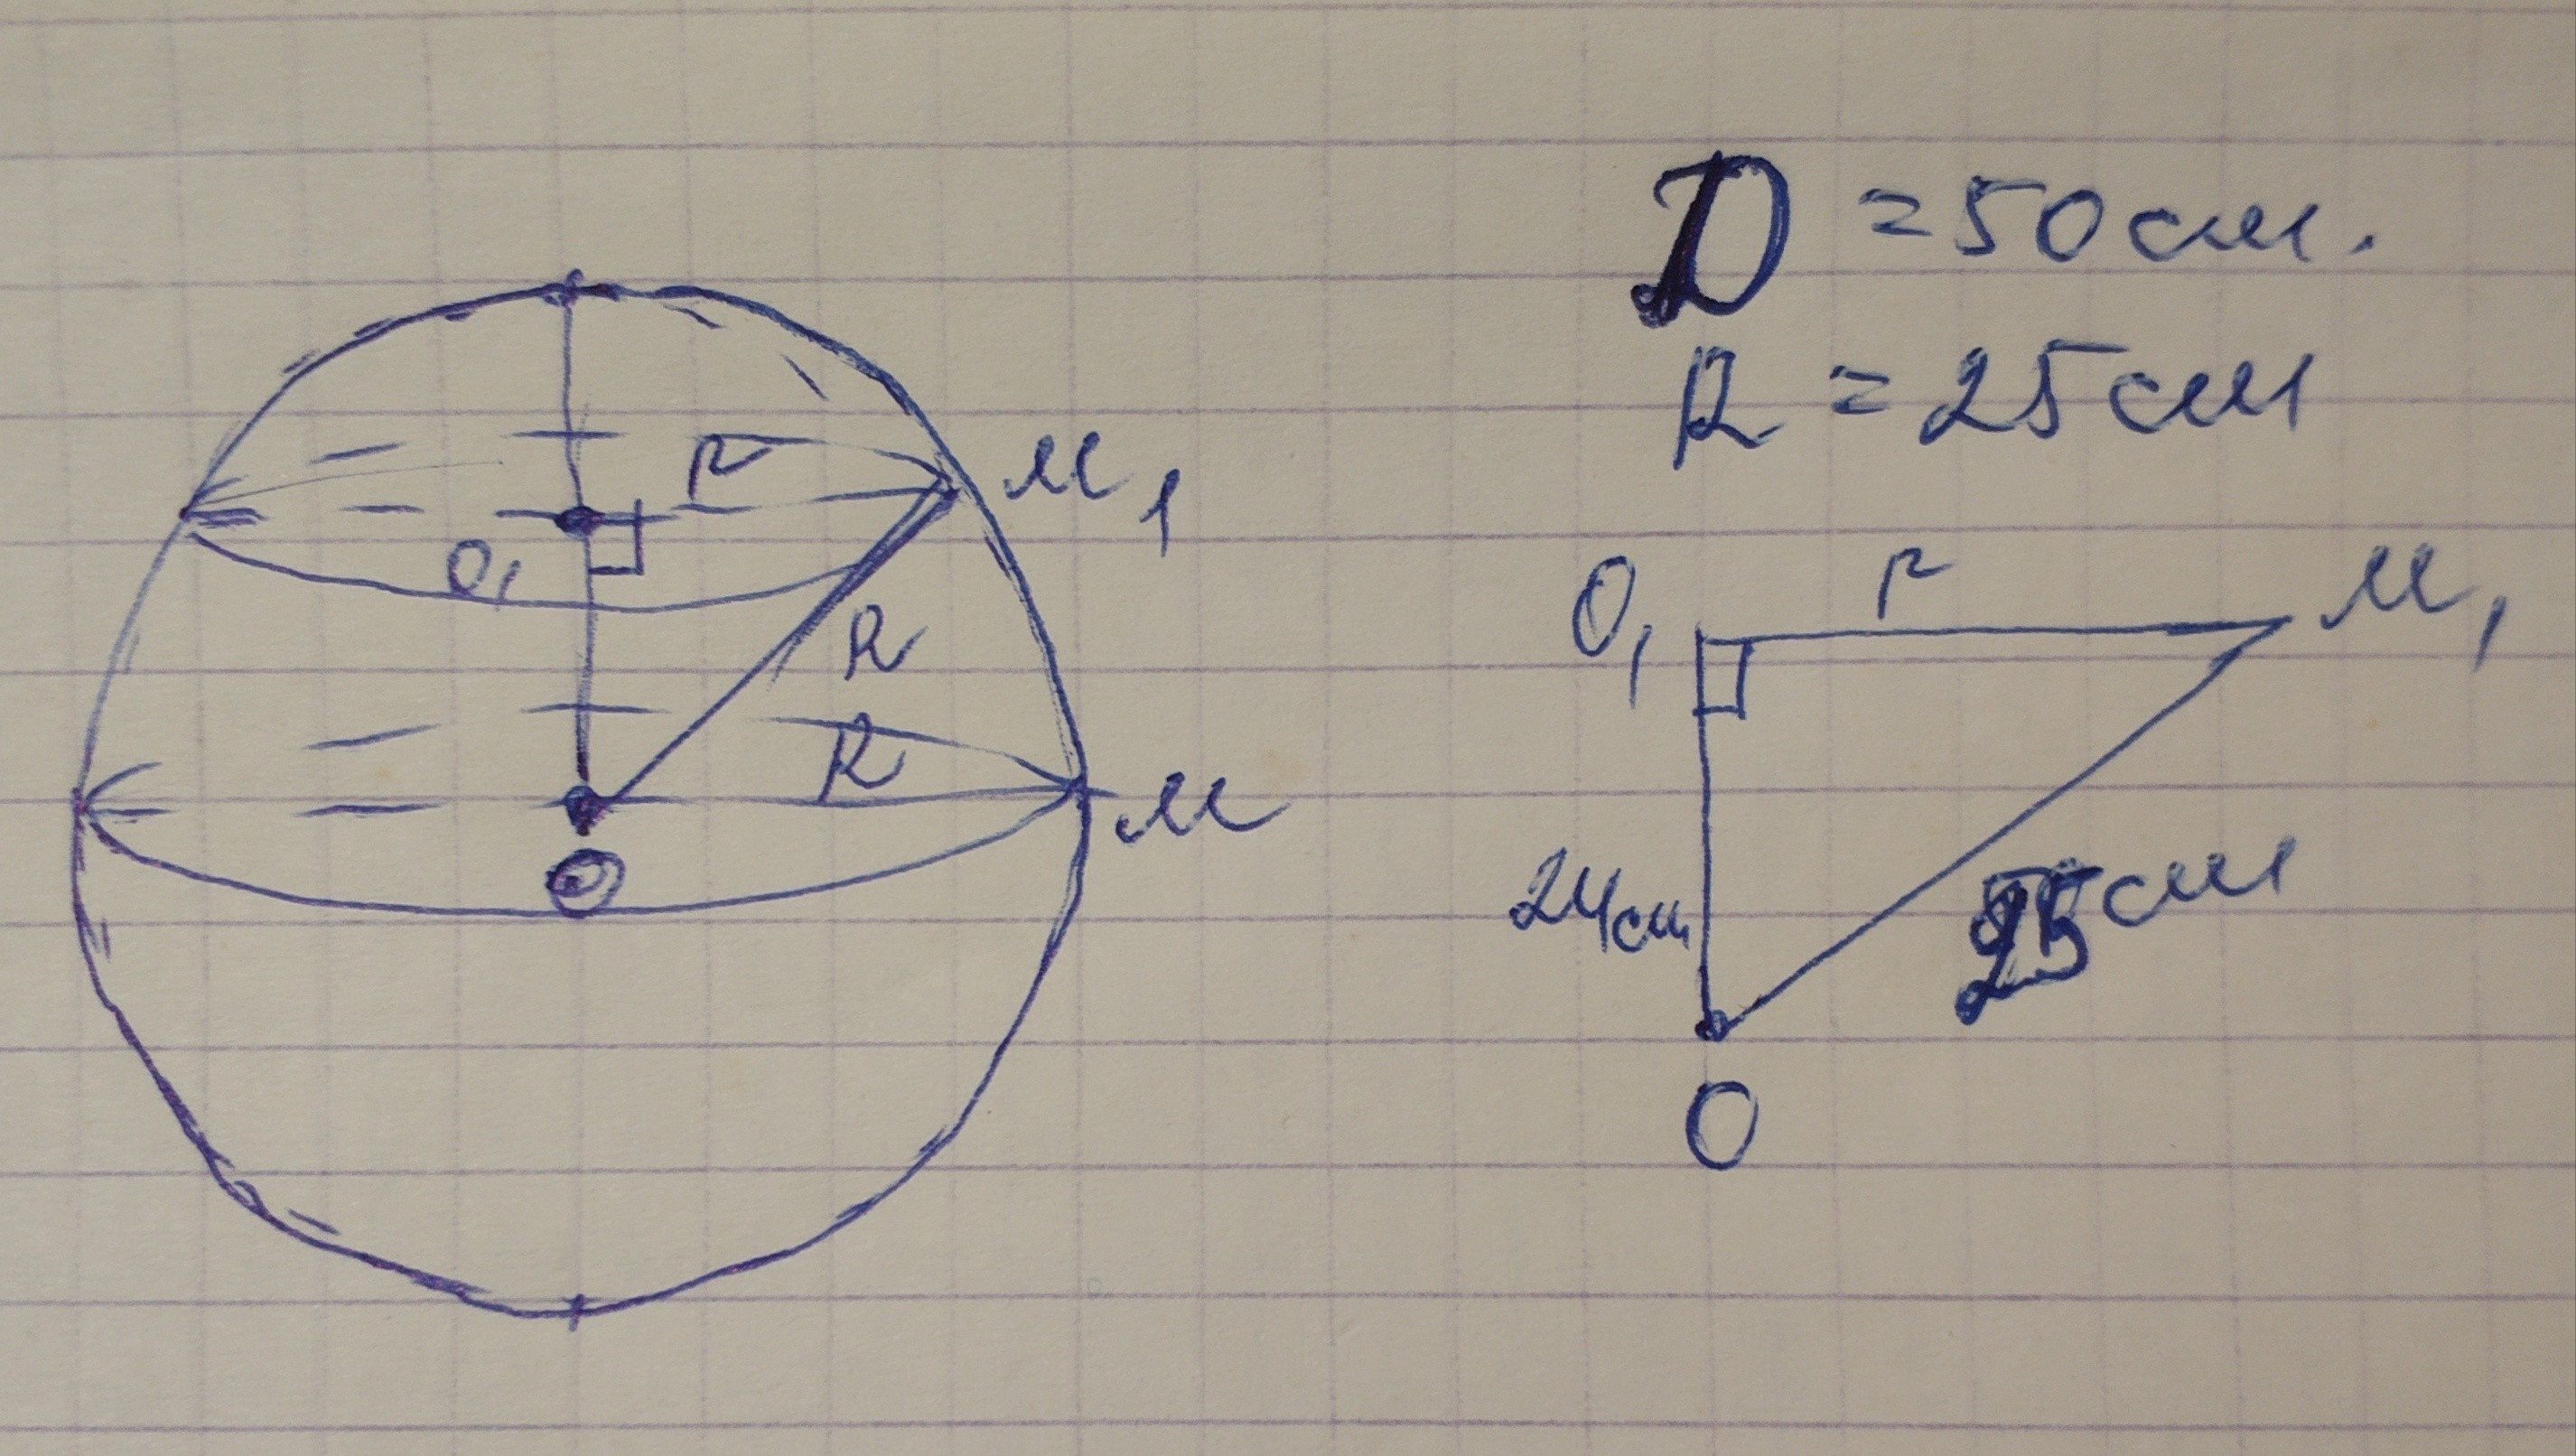 D = 50 см.
R = 25 см
r
М1
O1
R
R
М
O
O1
r
М1
24 см
25 см
O